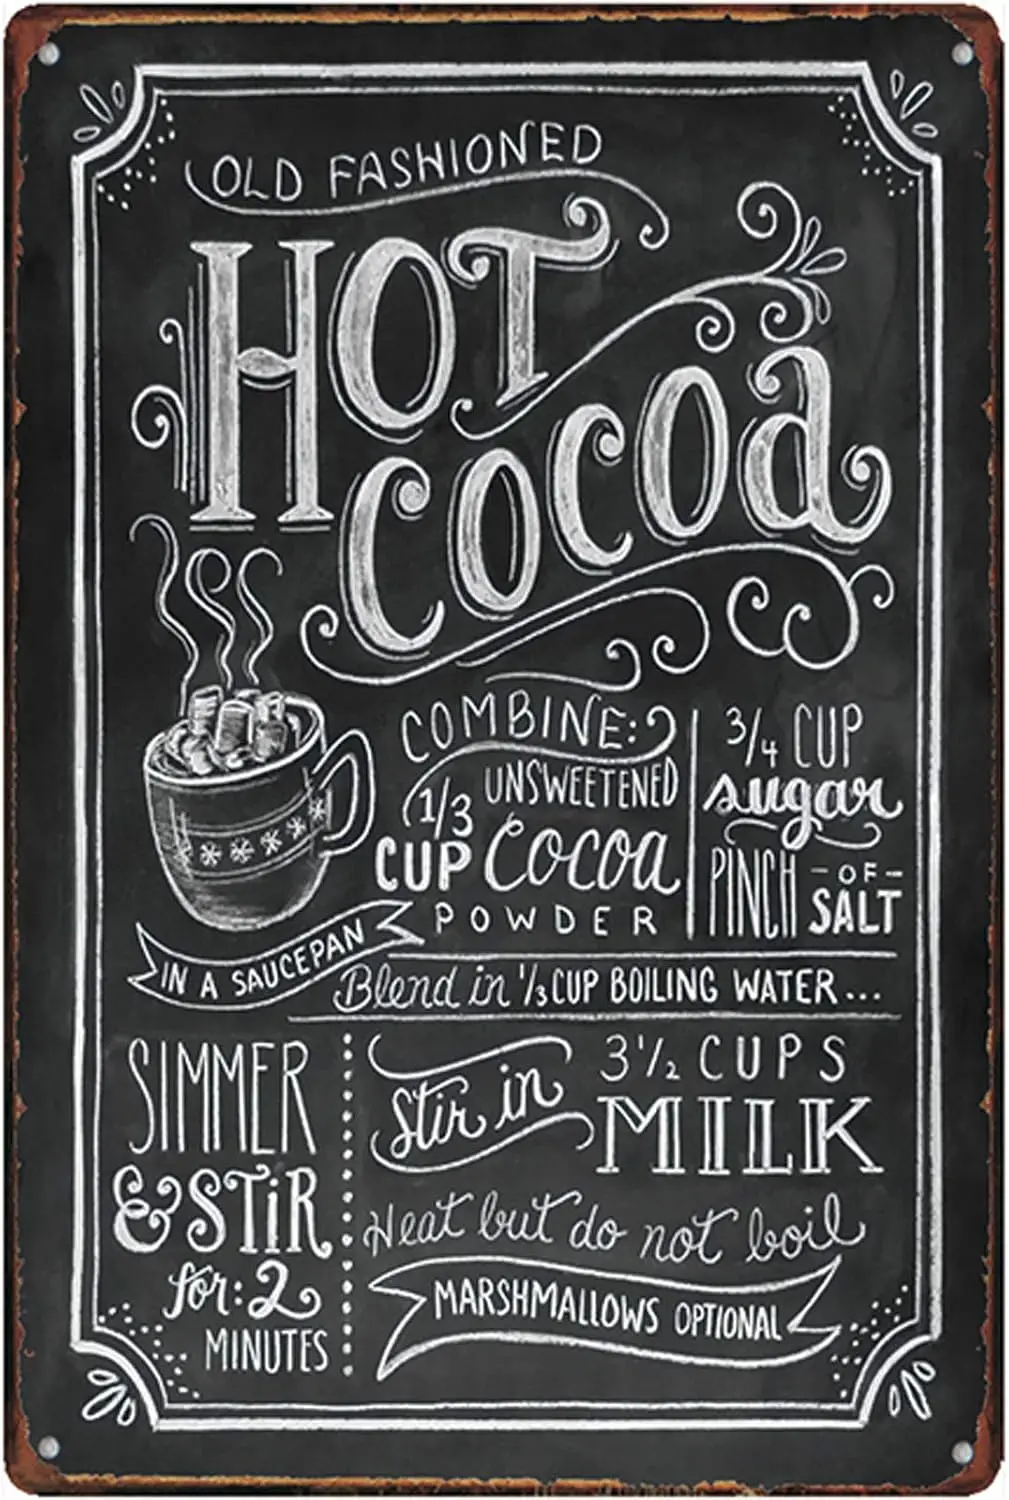 OLD FASHIONED
HOT
Cocoa
COMBINE:
1/3 CUP
UNSWEETENED
Cocoa
POWDER
3/4 CUP
sugar
PINCH -OF- SALT
IN A SAUCEPAN
Blend in 1/3 CUP BOILING WATER...
SIMMER
& STiR
for: 2
MINUTES
Stir in
3 1/2 CUPS
MILK
Heat but do not boil
MARSHMALLOWS OPTIONAL